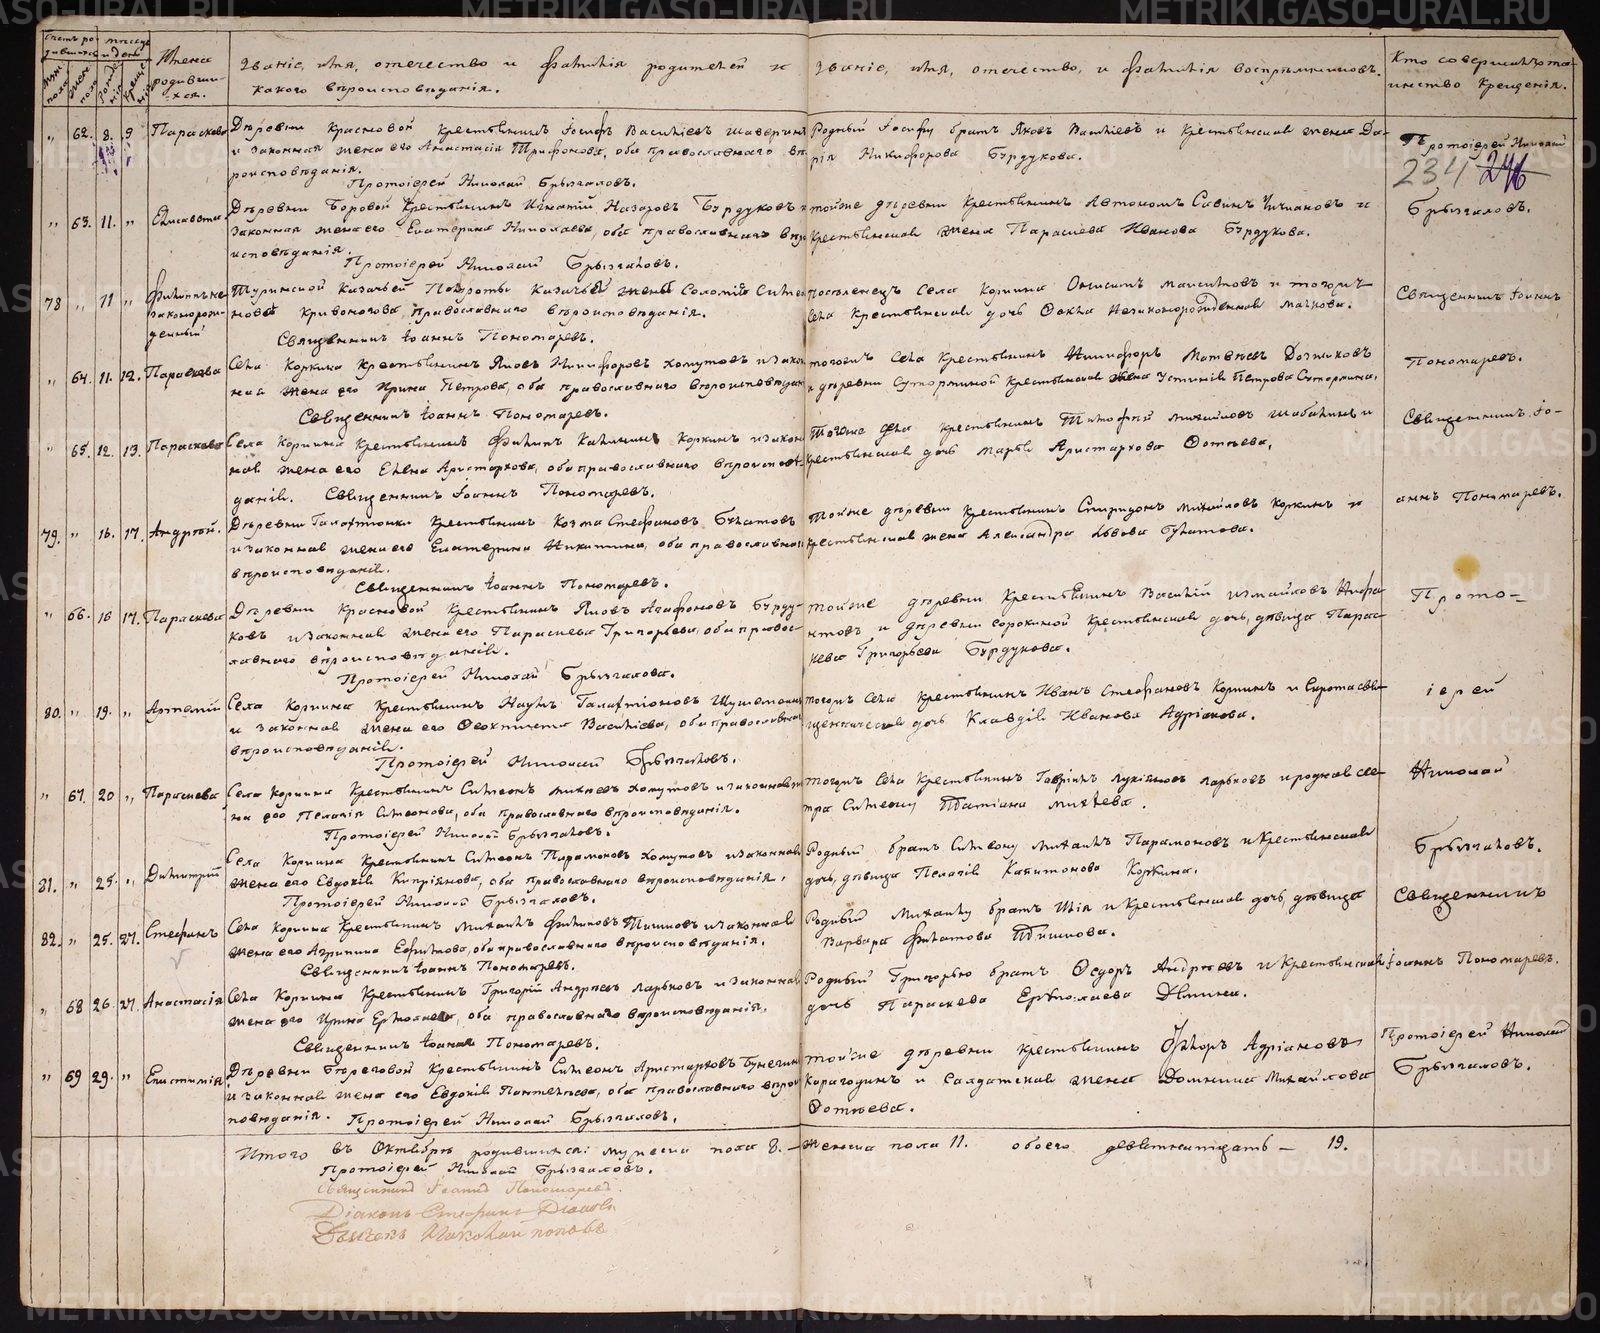 METRIKI.GASO-URAL.RU
Счетъ родившихся
Мѣсяцъ и день
Имена родившихся.
Званіе, имя, отечество и фамилія родителей и какого вѣроисповѣданія.
Званіе, имя, отечество, и фамилія воспріемниковъ.
Кто совершалъ таинство крещенія.
Муж. пола
Жен. пола
Рожденія
Крещенія
„ 62. 8. 9 Параскева
Деревни Красновой крестьянинъ Іосифъ Василіевъ
и законная жена его Анастасія Трифонова, оба православнаго вѣ-
роисповѣданія.
Протоіерей Николай Брызгаловъ.
Родный Іосифу братъ Яковъ Василіевъ и крестьянская жена Да-
рія Никифорова Бурдукова.
Протоіерей Николай
234 246
Брызгаловъ.
„ 63. 11. „ Елисавета
Деревни Боровой крестьянинъ Игнатій Назаровъ Бурдуковъ и
законная жена его Екатерина Николаева, оба православнаго вѣро-
исповѣданія.
Протоіерей Николай Брызгаловъ.
тойже деревни крестьянинъ Автономъ Савинъ и
крестьянская жена Параскева Иванова Бурдукова.
78 „ 11 „ Филиппъ незаконорожденный
Туринской казачьей жена Соломія
нова Кривоногова, православнаго вѣроисповѣданія.
Священникъ Іоаннъ Пономаревъ.
Поселенецъ села Коркина Онисимъ и тогожъ
села крестьянская дочь Фекла Незаконорожденная Малкова.
Священникъ Іоаннъ
Пономаревъ.
„ 64. 11. 12. Параскева
Села Коркина крестьянинъ Яковъ Никифоровъ Хомутовъ и закон-
ная жена его Ирина Петрова, оба православнаго вѣроисповѣдан
Священникъ Іоаннъ Пономаревъ.
тогожъ села крестьянинъ Никифоръ Матвѣевъ
и деревни Суторминой крестьянская жена Устинія Петрова Сутормина.
„ 65. 12. 13. Параскева
Села Коркина крестьянинъ Филипъ Калининъ Коркинъ и закон
ная жена его Елена Аристархова, оба православнаго вѣроисповѣ-
данія. Священникъ Іоаннъ Пономаревъ.
Тогоже села крестьянинъ Тимофей Михайловъ Шабалинъ и
крестьянская дочь Марья Аристархова Фотѣева.
Священникъ Іо-
аннъ Пономаревъ.
79. „ 16. 17. Андрей.
Деревни Галактіонки крестьянинъ Козма Стефановъ Булатовъ
и законная жена его Екатерина Никитина, оба православнаго
вѣроисповѣданія.
Священникъ Іоаннъ Пономаревъ.
Тойже деревни крестьянинъ Спиридонъ Михайловъ Коркинъ и
крестьянская жена Александра Львова Булатова.
„ 66. 16 17. Параскева
Деревни Красновой крестьянинъ Яковъ Агафоновъ Бурду-
ковъ и законная жена его Параскева Григорьева, оба правос-
лавнаго вѣроисповѣданія.
Протоіерей Николай Брызгаловъ.
тойже деревни крестьянинъ Василій Измайловъ
и деревни Сорокиной крестьянская дочь, дѣвица Парас-
кева Григорьева Бурдукова.
Прото-
іерей
80. „ 19. „ Артемій
Села Коркина крестьянинъ Наумъ Галактіоновъ
и законная жена его Феоктиста Василіева, оба православнаго
вѣроисповѣданія.
Протоіерей Николай Брызгаловъ.
тогожъ села крестьянинъ Иванъ Стефановъ Коркинъ и сирота свя-
щенническая дочь Клавдія Иванова Адріанова.
„ 67. 20 „ Параскева
Села Коркина крестьянинъ Симеонъ Михѣевъ Хомутовъ и законная же-
на его Пелагія Симеонова, оба православнаго вѣроисповѣданія.
Протоіерей Николай Брызгаловъ.
тогожъ села крестьянинъ Гавріилъ Лукіяновъ Ларьковъ и родная сес-
тра Симеону Татіана Михѣева.
Николай
81. „ 25. „ Димитрій
Села Коркина крестьянинъ Симеонъ Парамоновъ Хомутовъ и законная
жена его Евдокія Кипріянова, оба православнаго вѣроисповѣданія.
Протоіерей Николай Брызгаловъ.
Родный братъ Симеону Михаилъ Парамоновъ и крестьянская
дочь, дѣвица Пелагія Капитонова Коркина.
Брызгаловъ.
82. „ 25. 27. Стефанъ
Села Коркина крестьянинъ Михаилъ Филиповъ Тишковъ и законная
жена его Агрипина Ефимова, оба православнаго вѣроисповѣданія.
Священникъ Іоаннъ Пономаревъ.
Родный Михаилу братъ Илія и крестьянская дочь, дѣвица
Варвара Филатова Тишкова.
Священникъ
„ 68 26. 27. Анастасія
Села Коркина крестьянинъ Григорій Андреевъ Ларьковъ и законная
жена его Ирина Ермолаева, оба православнаго вѣроисповѣданія.
Священникъ Іоаннъ Пономаревъ.
Родный Григорью братъ Федоръ Андреевъ и крестьянская
дочь Параскева Ермолаева
Іоаннъ Пономаревъ.
„ 69 29. „ Епистимія
Деревни Береговой крестьянинъ Симеонъ Аристарховъ
и законная жена его Евдокія Пантелѣева, оба православнаго вѣроис
повѣданія. Протоіерей Николай Брызгаловъ.
тойже деревни крестьянинъ Адріановъ
Карагодинъ и солдатская жена Домника Михайлова
Фотѣева.
Протоіерей Николай
Брызгаловъ.
Итого въ Октябрѣ родившихся: мужеска пола 8. – женска пола 11. обоего девятнатцать – 19.
Протоіерей Николай Брызгаловъ.
Священникъ Іоаннъ Пономаревъ.
Діаконъ Стефанъ
Николай Поповъ